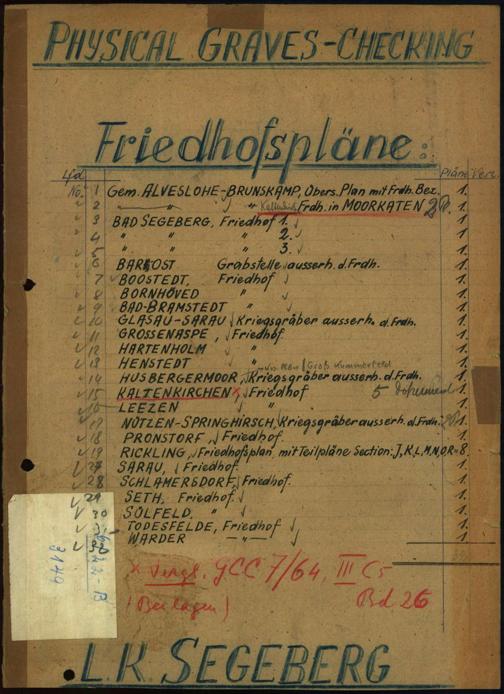 PHYSICAL GRAVES-CHECKING
Friedhofspläne:
Lfd. No. Pläne Verz.
1 Gem. ALVESLOHE-BRUNSKAMP, Übers. Plan mit Frdh. Bez. 1.
2 " " Frdh. in MOORKATEN 1.
3 BAD SEGEBERG, Friedhof 1. 1.
4 " " 2. 1.
5 " " 3. 1.
6 BARKOST Grabstelle ausserh. d. Frdh. 1.
7 BOOSTEDT, Friedhof 1.
8 BORNHÖVED " 1.
9 BAD-BRAMSTEDT " 1.
10 GLASAU-SARAU, Kriegsgräber ausserh. d. Frdh. 1.
11 GROSSENASPE, Friedhof 1.
12 HARTENHOLM " 1.
13 HENSTEDT " 1.
14 HUSBERGERMOOR, Kriegsgräber ausserh. d. Frdh. 1.
15 KALTENKIRCHEN x Friedhof 5 Dokumente 1.
16 LEEZEN " 1.
17 NÜTZEN-SPRINGHIRSCH, Kriegsgräber ausserh. d. Frdh. 1.
18 PRONSTORF, Friedhof 1.
19 RICKLING, Friedhofsplan mit Teilpläne Section: J, K, L, M, N, O, R = 8.
27 SARAU, Friedhof 1.
28 SCHLAMERSDORF, Friedhof. 1.
29 SETH, Friedhof 1.
30 SÜLFELD, " 1.
TODESFELDE, Friedhof 1.
WARDER " 1.
x Vergl. GCC 7/64, III C5
(Beilagen) Bd 26
L.K. SEGEBERG